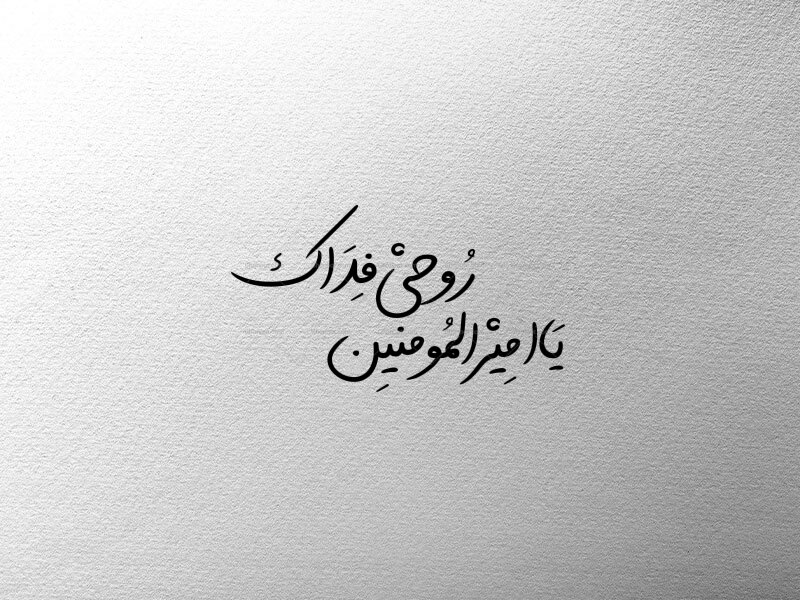 رُوحیْ فِدَاك
يَا امِیْر المُومنیِن